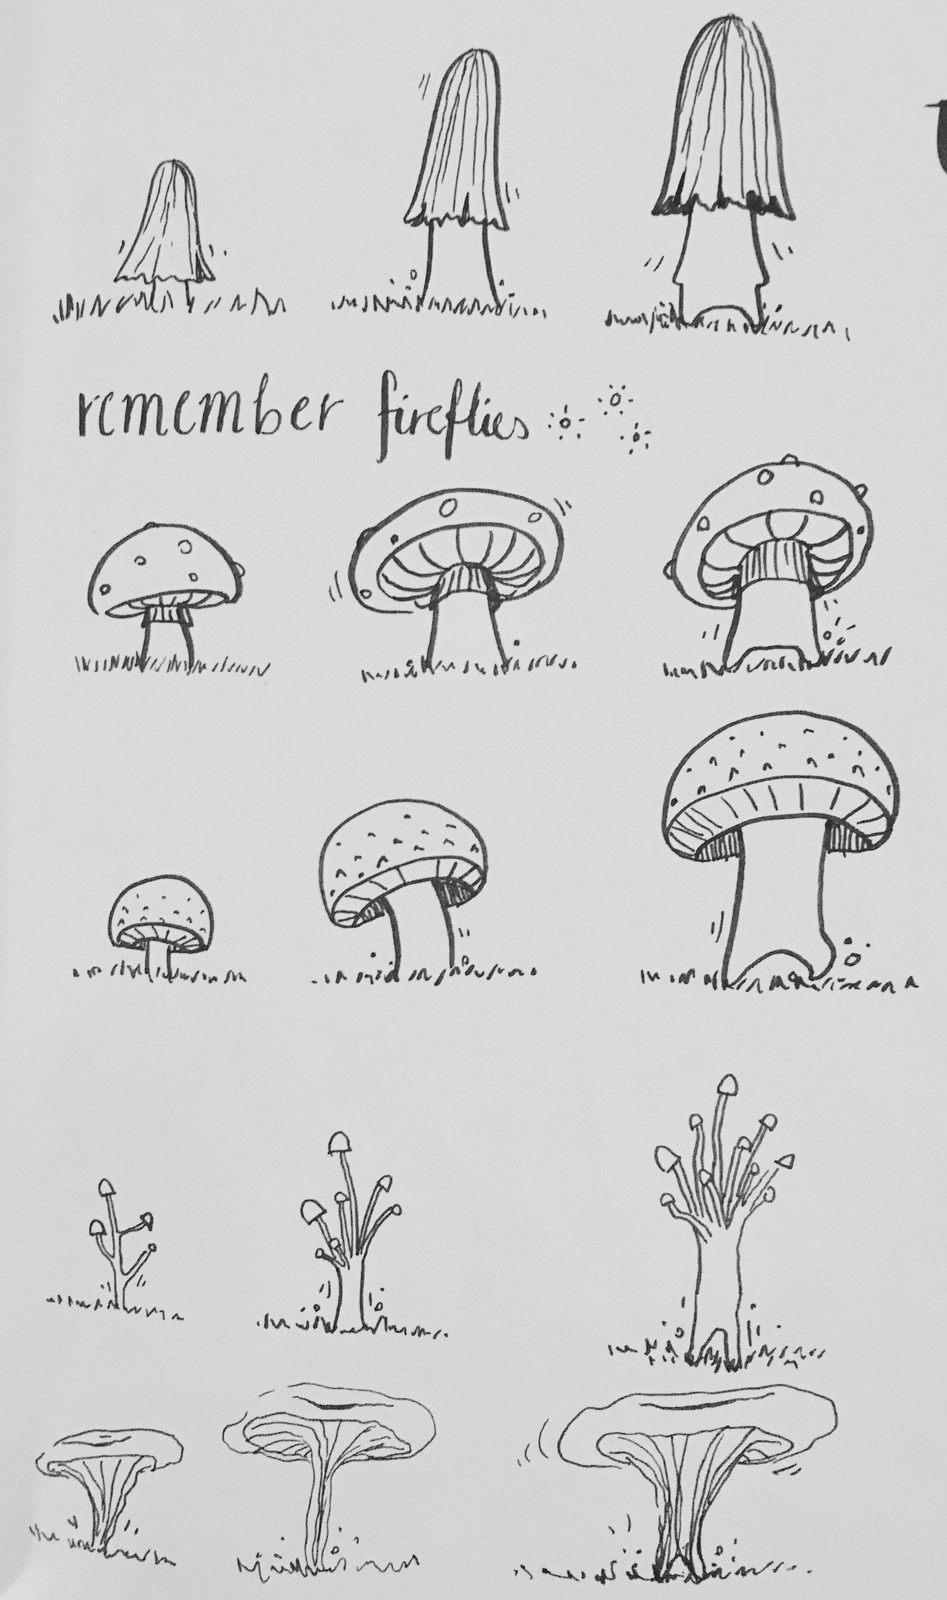 remember fireflies